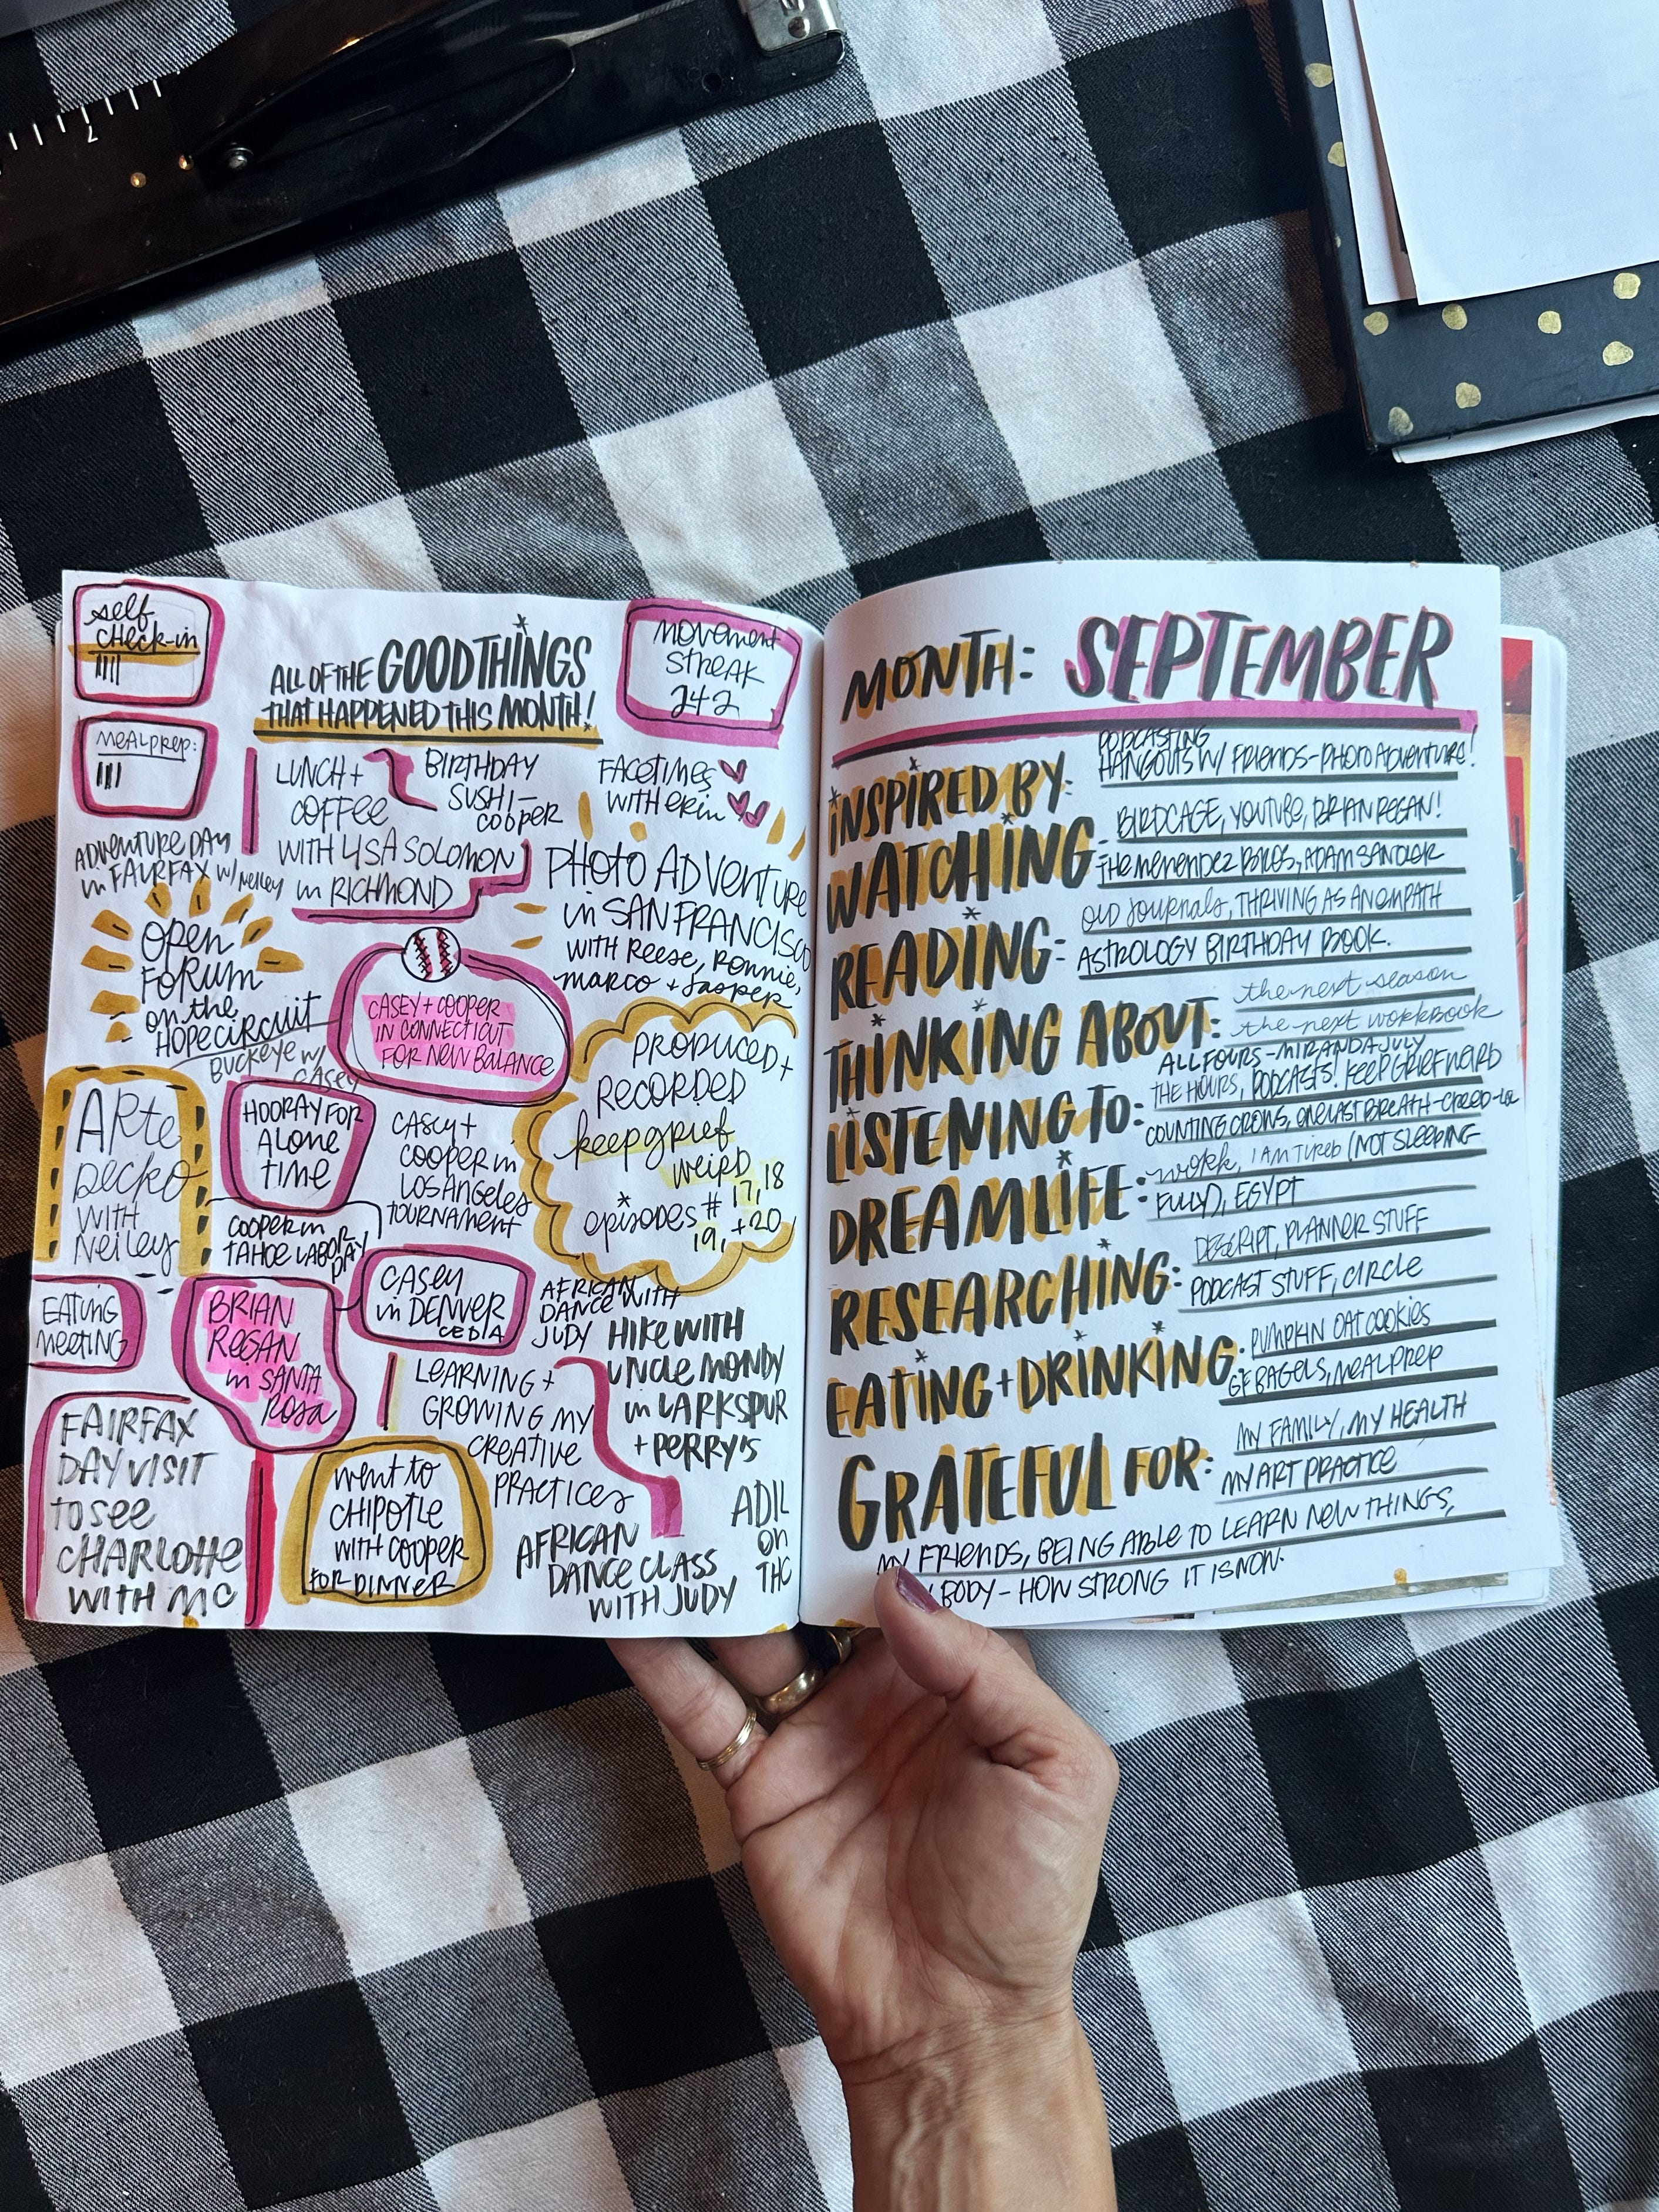 self
check-in
MEAL PREP:
ALL OF THE GOOD THINGS
THAT HAPPENED THIS MONTH!
MOVEMENT
STREAK
242
LUNCH +
COFFEE
WITH LISA SOLOMON
in RICHMOND
BIRTHDAY
SUSHI-
COOPER
FACETIMES
WITH ERIN
ADVENTURE DAY
in FAIRFAX w/ Neiley
OPEN
FORUM
on the
HOPE CIRCUIT
PHOTO ADVENTURE
in SAN FRANCISCO
WITH REESE, RONNIE,
MARCO + Jasper
CASEY + COOPER
IN CONNECTICUT
FOR NEW BALANCE
BUCKEYE W/
CASEY
PRODUCED +
RECORDED
keep grief
weird
episodes # 17, 18
19, + 20
ARTE
DECKO
WITH
Neiley
HOORAY FOR
ALONE
TIME
CASEY +
COOPER in
LOS ANGELES
TOURNAMENT
COOPER in
TAHOE LABOR
DAY
EATING
MEETING
BRIAN
REGAN
in SANTA
Rosa
CASEY
in DENVER
CEDIA
AFRICAN
DANCE WITH
JUDY
HIKE WITH
UNCLE MONDY
in LARKSPUR
+ PERRY'S
LEARNING +
GROWING MY
CREATIVE
PRACTICES
FAIRFAX
DAY VISIT
to see
CHARLOTTE
WITH MC
Went to
CHIPOTLE
WITH COOPER
FOR DINNER
AFRICAN
DANCE CLASS
WITH JUDY
ADIL
on
THC
MONTH: SEPTEMBER
INSPIRED BY:
PODCASTING
HANGOUTS W/ FRIENDS-PHOTO ADVENTURE!
WATCHING:
BIRDCAGE, YOUTUBE, BRIAN REGAN!
THE MENENDEZ BROS, ADAM SANDLER
READING:
OLD JOURNALS, THRIVING AS AN EMPATH
ASTROLOGY BIRTHDAY BOOK.
THINKING ABOUT:
the next season
the next workbook
LISTENING TO:
ALL FOURS - MIRANDA JULY
THE HOURS, PODCASTS! KEEP GRIEF WEIRD
COUNTING CROWS, ONE LAST BREATH-CREED-
DREAMLIFE:
work, I AM TIRED (NOT SLEEPING
FULLY), EGYPT
RESEARCHING:
DESCRIPT, PLANNER STUFF
PODCAST STUFF, CIRCLE
EATING + DRINKING:
PUMPKIN OAT COOKIES
GF BAGELS, MEAL PREP
GRATEFUL FOR:
MY FAMILY, MY HEALTH
MY ART PRACTICE
MY FRIENDS, BEING ABLE TO LEARN NEW THINGS,
BODY - HOW STRONG IT IS NOW.